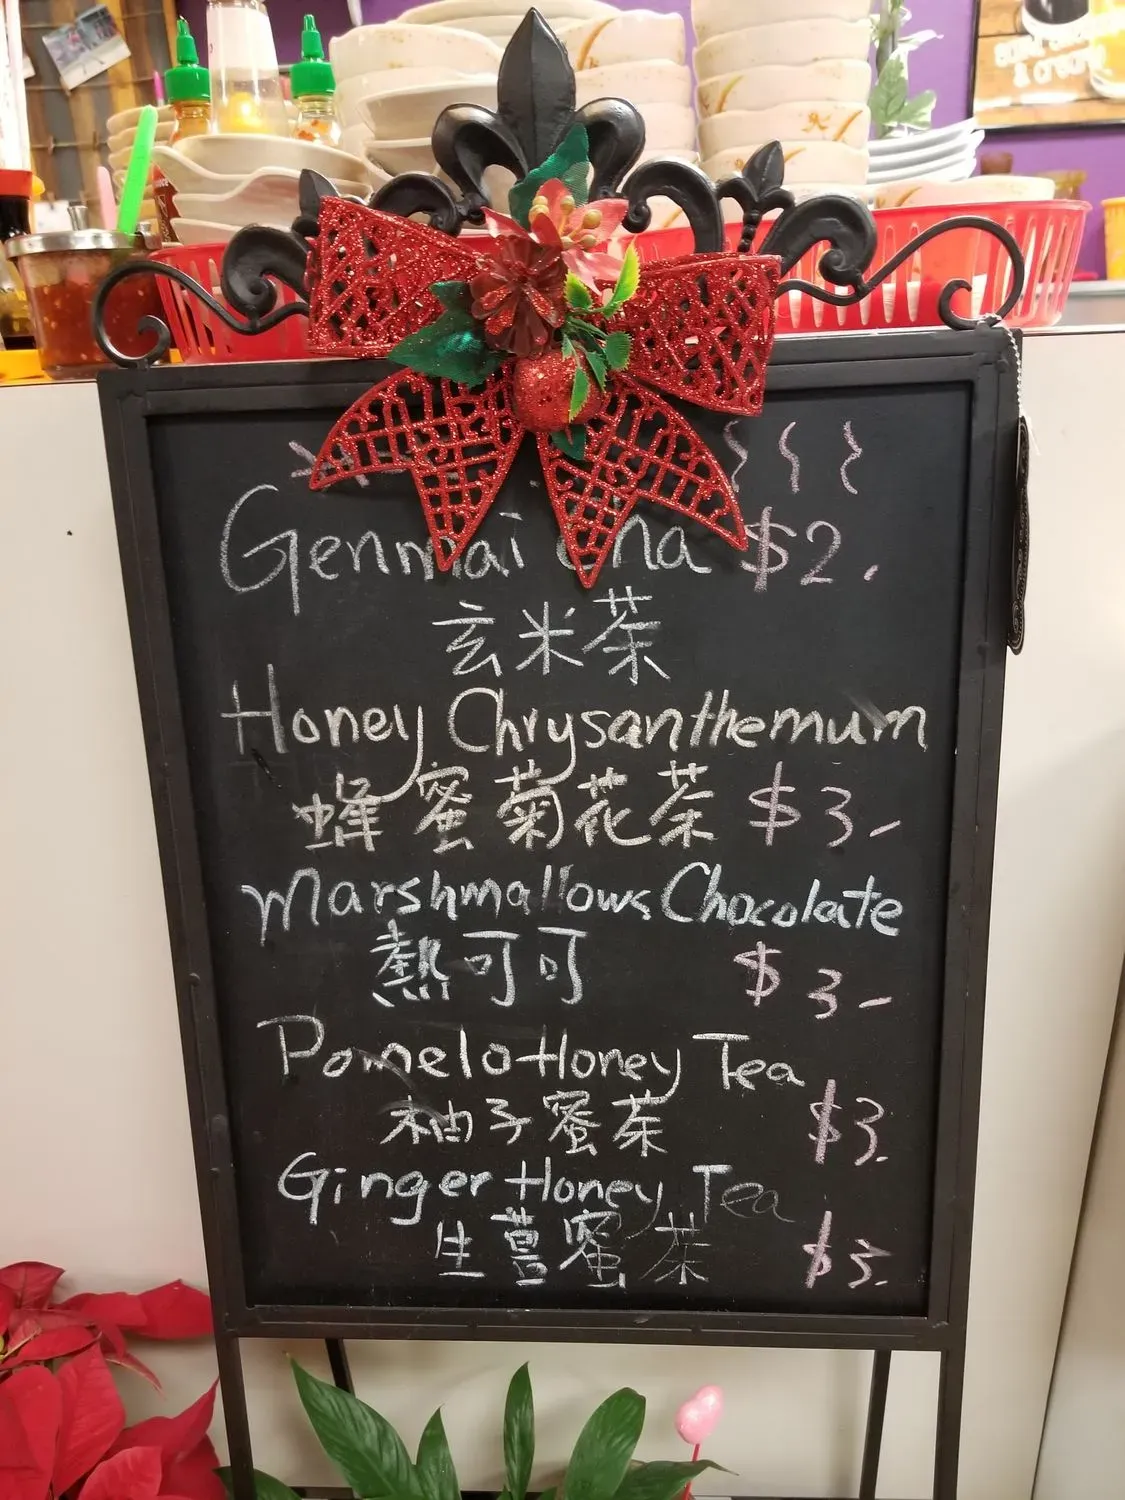 Genmai Cha $2.
玄米茶
Honey Chrysanthemum
蜂蜜菊花茶 $3-
Marshmallows Chocolate
熱可可 $3-
Pomelo Honey Tea
柚子蜜茶 $3.
Ginger Honey Tea
生薑蜜茶 $3.